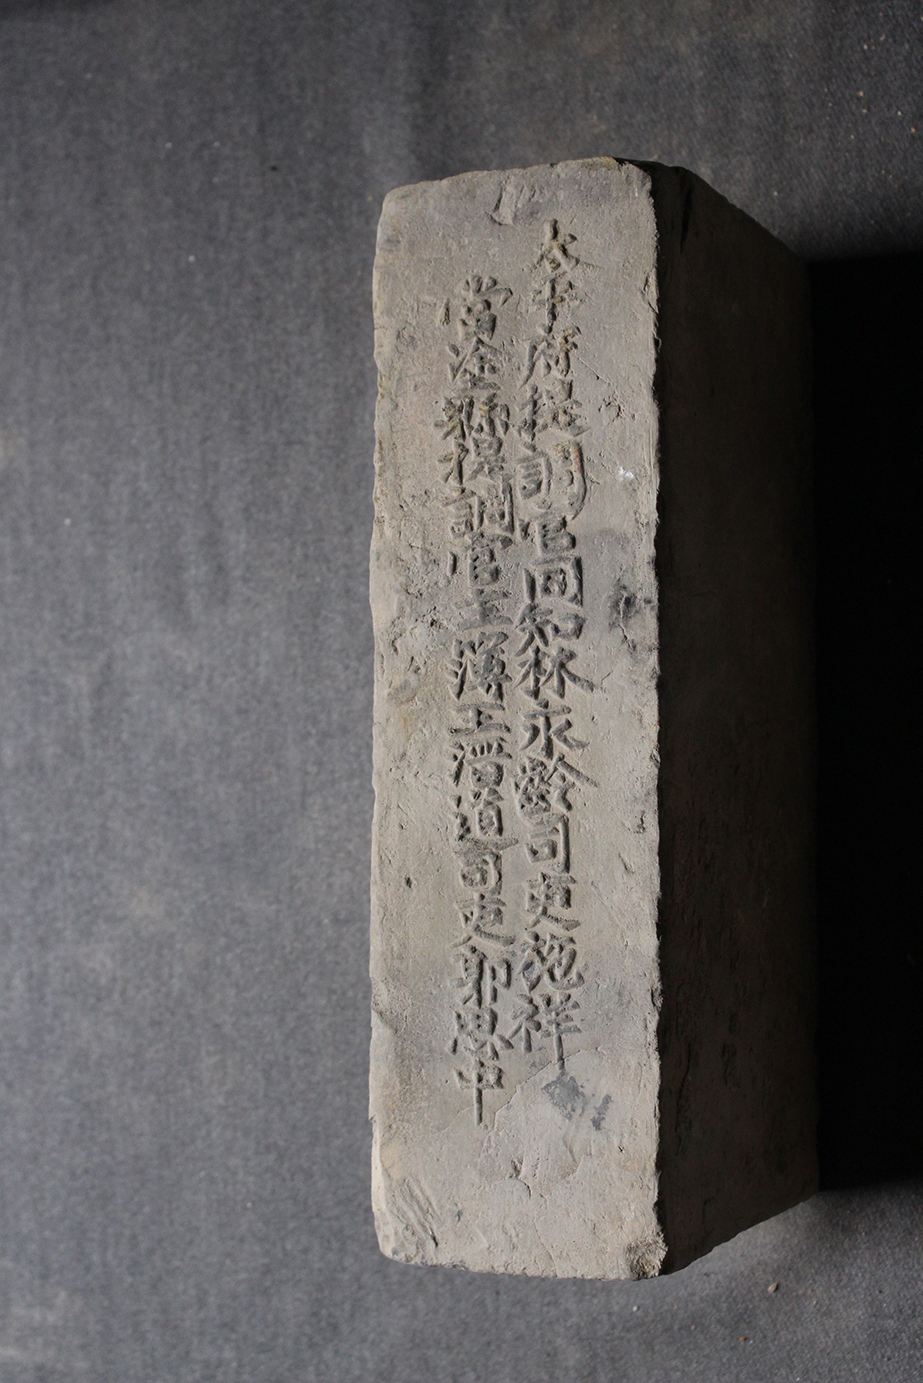 太平府提調官同知林永齡司吏池祥
當塗縣提調官主簿王滔司吏耶惠中